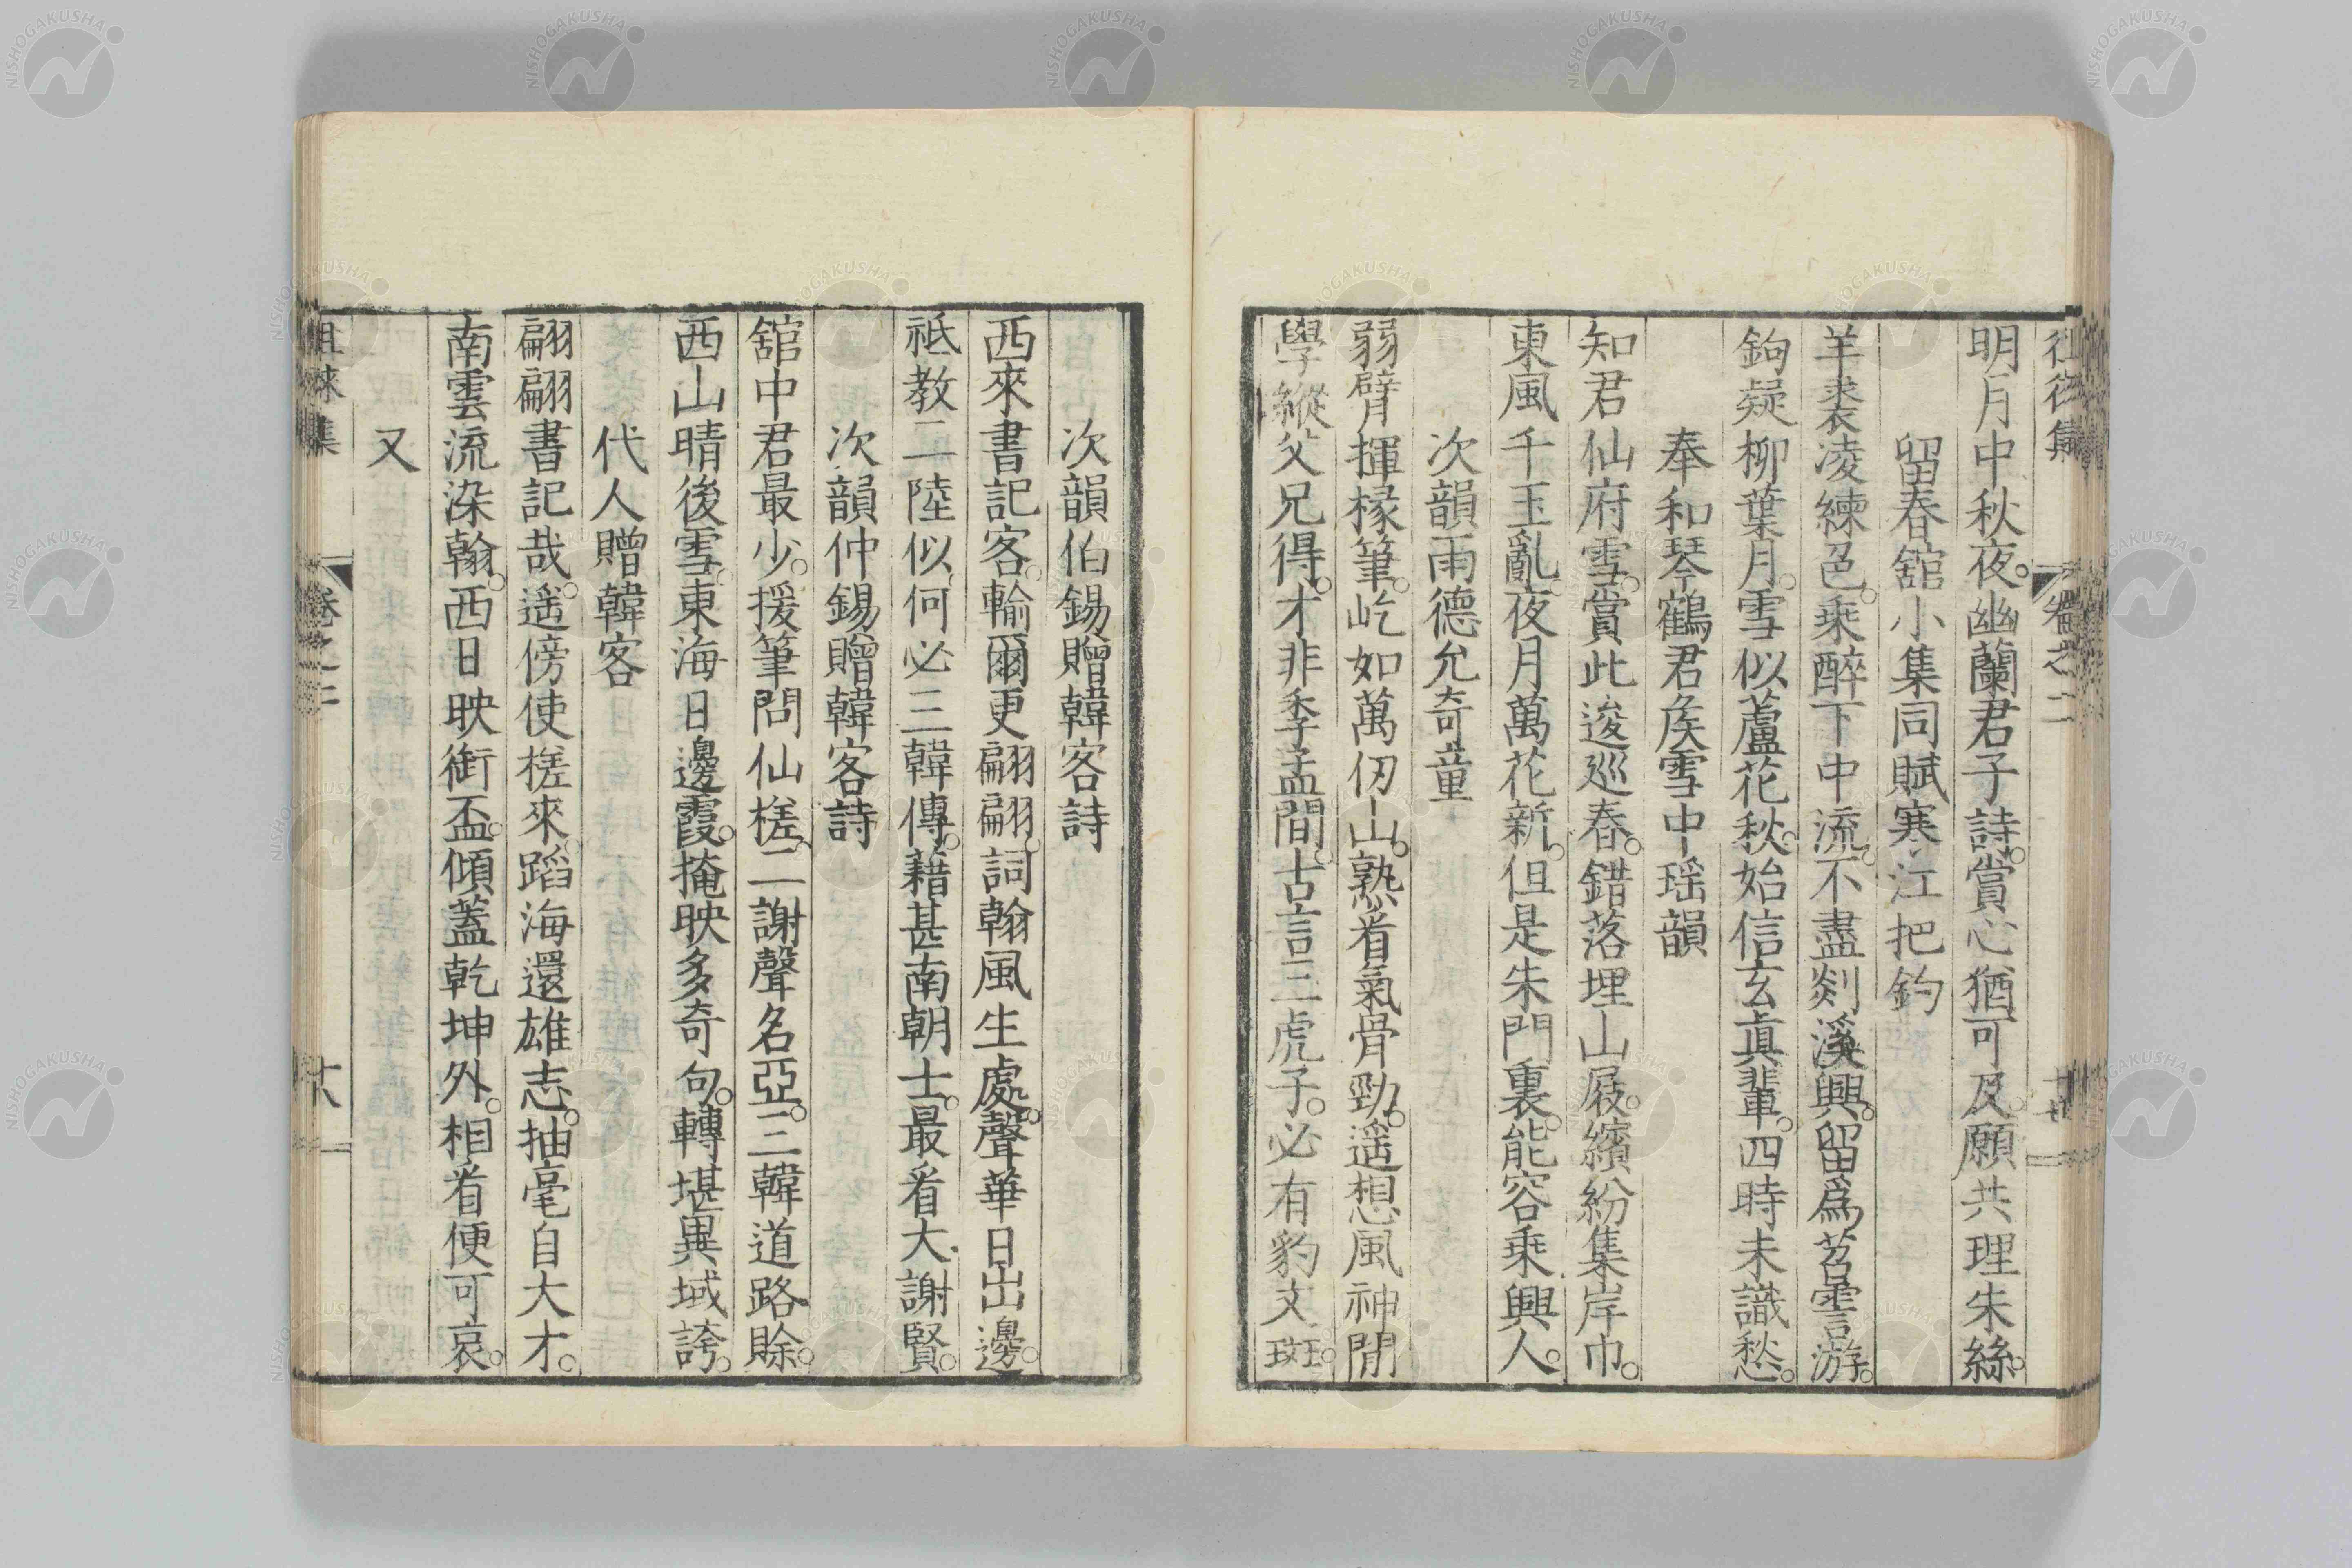 明月中秋夜。幽蘭君子詩。賞心猶可及。願共理朱絲。
留春舘小集同賦寒江把釣
羊裘凌練色。乘醉下中流。不盡剡溪興。留爲苕霅游。
鉤疑柳葉月。雪似蘆花秋。始信玄眞輩。四時未識愁。
奉和琴鶴君矦雪中瑶韻
知君仙府雪。賞此逡巡春。錯落埋山屐。繽紛集岸巾。
東風千玉亂。夜月萬花新。但是朱門裏。能容乘興人。
次韻雨德允奇童
弱臂揮椽筆。屹如萬仭山。熟看氣骨勁。遥想風神閒
學縱父兄得。才非季孟間。古言三虎子。必有豹文斑。
次韻伯錫贈韓客詩
西來書記客。輸爾更翩翩。詞翰風生處。聲華日出邊。
祗教二陸似。何必三韓傳。藉甚南朝士。最看大謝賢。
次韻仲錫贈韓客詩
舘中君最少。援筆問仙槎。二謝聲名亞。三韓道路賖。
西山晴後雪。東海日邊霞。掩映多奇句。轉堪異域誇。
代人贈韓客
翩翩書記哉。遥傍使槎來。蹈海還雄志。抽毫自大才。
南雲流染翰。西日映銜盃。傾蓋乾坤外。相看便可哀。
又
徂徠集
卷之二
十八